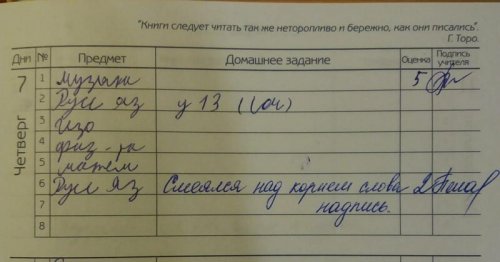 "Книги следует читать так же неторопливо и бережно, как они писались".
Г. Торо.
Дни № Предмет Домашнее задание Оценка Подпись учителя
7 Четверг
1 музыка 5
2 Русс яз у 13 (
3 Изо
4 физ-ра
5 матем
6 Русс яз Смеялся над корнем слова 2
7 надпись.
8